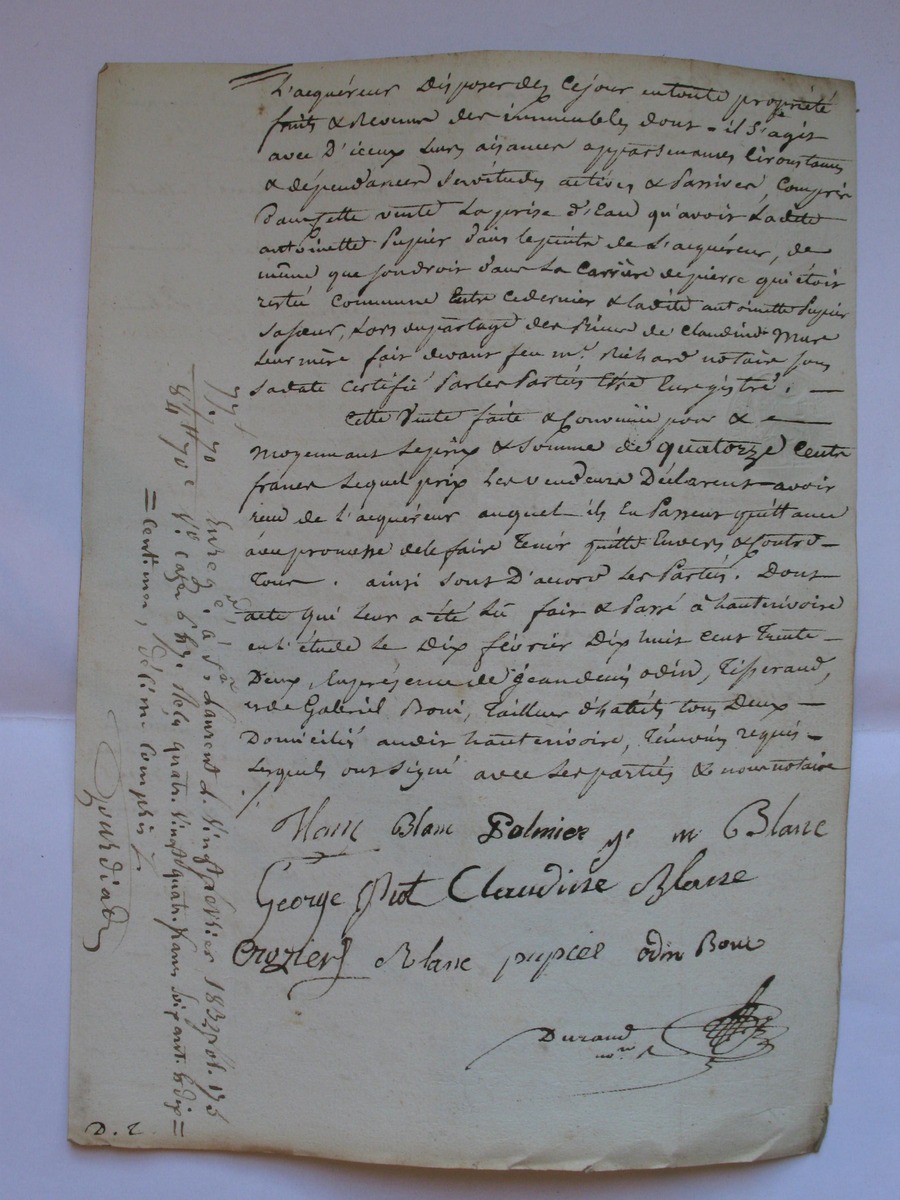 L'acquéreur disposer dez cejour entoute propriété
fruits & Revenus des immeubles dont = il s'agit
avec D'iceux Leurs aisances appartenances Circonstances
& dépendances Servitudes actives & Passives, Compris
Dans cette vente La prise d'Eau qu'avoit Ladite
antoinette Pupier dans le de L'acquéreur, de
même que son droit dans La Carrière depierre qui étoit
restée Commune Entre cedernier & ladite antoinette Pupier
Sasoeur, Lors dupartage des Biens de Claudine Mure
Leur mère fait devant feu me. Richard notaire sous
Sadate Certifié Par les Parties Etre Enregistré. —
Cette Vente faite & Convenüe pour & —
moyennant Leprix & Somme de quatorze Cents
francs Lequel prix Les vendeurs Déclarent avoir
recu de L'acquéreur auquel ils En Passent quittance
avec promesse de le faire Tenir quitte Envers & Contre —
Tous. ainsi sont D'accord Les Parties. Dont
acte qui Leur a été Lû fait & Passé à hauterivoire
en L'étude Le Dix février Dix huit cent Trente —
Deux, En présence de jean denis odin, Tisserand,
& de Gabriel Boni, Tailleur d'habits tous Deux —
Domiciliés audit hauterivoire, Témoins requis —
Lesquels ont Signé avec Les parties & nous notaire
Blanc Polmier m Blanc
George Piot Claudine Blanc
Crozier Blanc pupier odin Boni
Durand
nore
77. 70
84 f 70 c
Enregé. à St. Laurent L. Vingt février 1832 fol. 175
Vo. case 6 &c. Reçu quatre Vingt quatre francs soixante & dix =
= Centimes, Décime Compris
D. 2